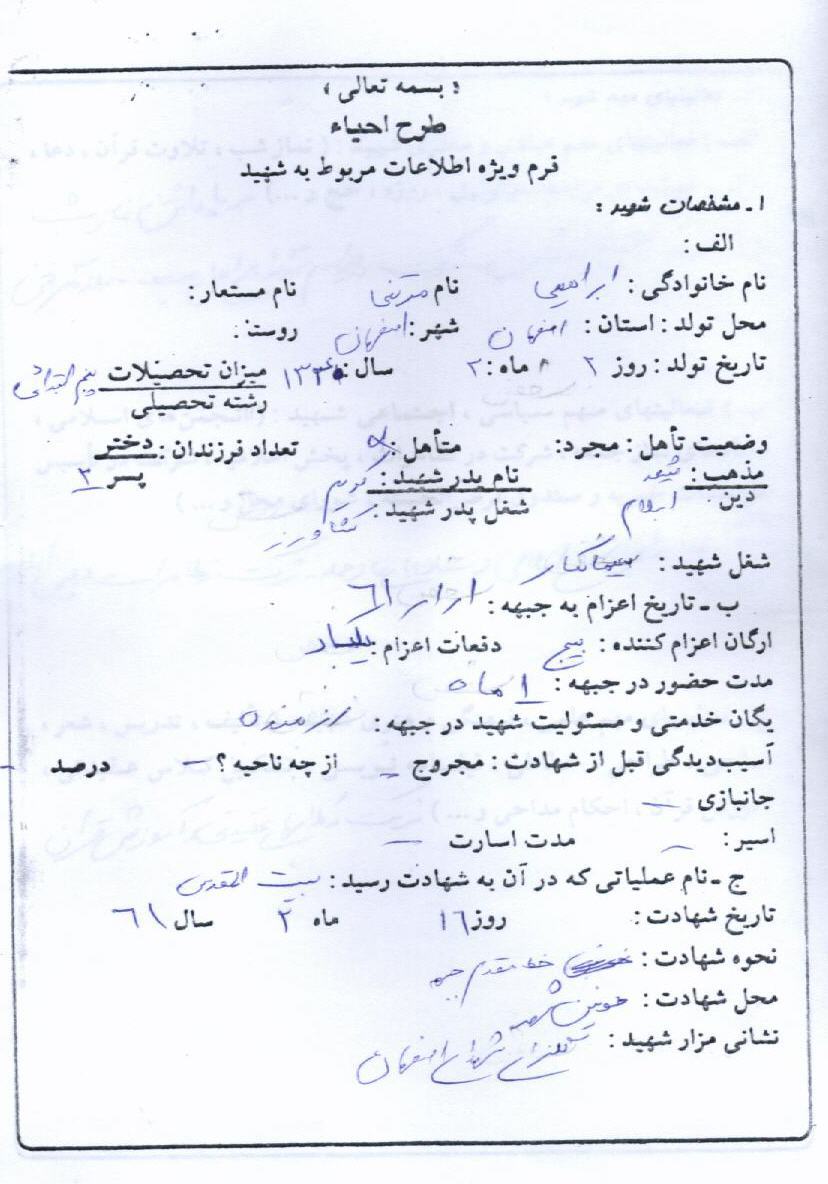 « بسمه تعالی »
طرح احیاء
فرم ویژه اطلاعات مربوط به شهید
۱ـ مشخصات شهید :
الف :
نام خانوادگی : ابراهیمی نام مرتضی نام مستعار :
محل تولد : استان : اصفهان شهر : اصفهان روستا :
تاریخ تولد : روز ۲ ماه : ۲ سال : میزان تحصیلات پنجم ابتدائی
رشته تحصیلی
وضعیت تأهل : مجرد : متأهل : تعداد فرزندان : دختر
مذهب : شیعه نام پدر شهید : کریم پسر ۲
دین اسلام شغل پدر شهید : کشاورز
شغل شهید :
ب ـ تاریخ اعزام به جبهه : ۱ر۱ر۶۱
ارگان اعزام کننده : بسیج دفعات اعزام : یکبار
مدت حضور در جبهه : ۱ ماه
یگان خدمتی و مسئولیت شهید در جبهه : رزمنده
آسیب‌دیدگی قبل از شهادت : مجروح ـ از چه ناحیه ؟ ـ درصد ـ
جانبازی ـ
اسیر : ـ مدت اسارت ـ
ج ـ نام عملیاتی که در آن به شهادت رسید : بیت المقدس
تاریخ شهادت : روز ۱۶ ماه ۲ سال ۶۱
نحوه شهادت : خط مقدم جبهه
محل شهادت : خونین شهر
نشانی مزار شهید : گلزار شهدای اصفهان